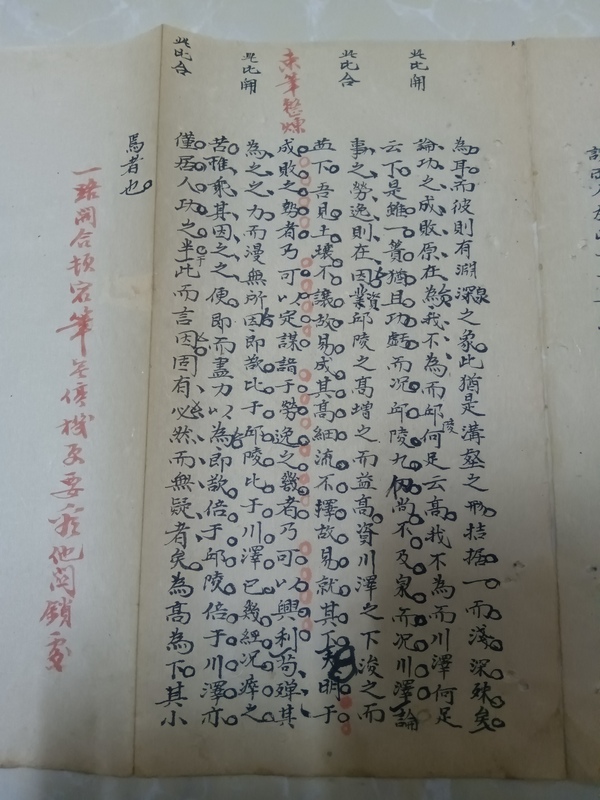 此比開
此比合
朱筆鍛煉
此比開
此比合
為耳而彼則有淵深泉之象此猶是溝壑之形拮据一而淺深殊矣
論功之成敗原在為我不為而邱陵何足云高我不為而川澤何足
云下是雖一簣猶且功虧而況邱陵九仞尚不及泉而況川澤論
事之勞逸則在因業資邱陵之高增之而益高資川澤之下浚之而
益下吾見土壤不讓故易成其高細流不擇故易就其下夫明于
成敗之勢者乃可以定謀諳于勞逸之幾者乃可以興利苟殫其
為之之力而漫無所因即哉比于邱陵比于川澤已幾經況瘁之
苦惟乘其因之之便即而盡力以為即欲倍于邱陵倍于川澤亦
僅居人功之半此而言因因有必然而無疑者矣為高為下其小
焉者也
一路開合頓宕筆無停機更要看他關鎖處